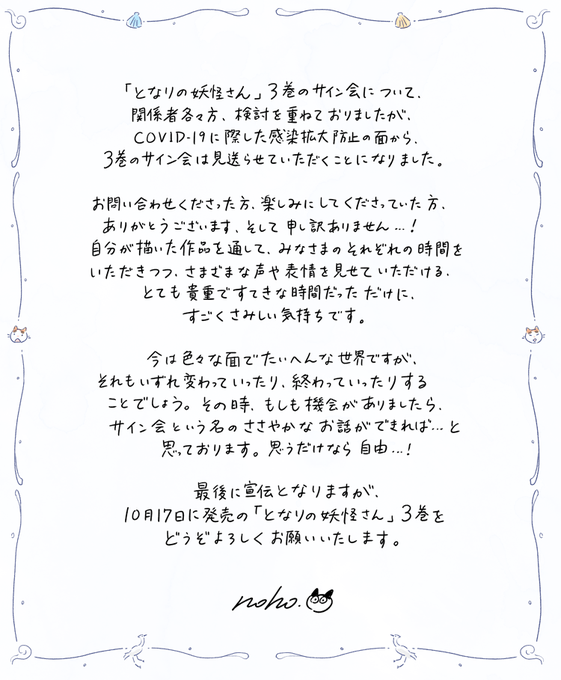 「となりの妖怪さん」3巻のサイン会について、
関係者各々方、検討を重ねておりましたが、
COVID-19に際した感染拡大防止の面から、
3巻のサイン会は見送らせていただくことになりました。
お問い合わせくださった方、楽しみにしてくださっていた方、
ありがとうございます、そして申し訳ありません…!
自分が描いた作品を通して、みなさまのそれぞれの時間を
いただきつつ、さまざまな声や表情を見せていただける、
とても貴重ですてきな時間だっただけに、
すごくさみしい気持ちです。
今は色々な面でたいへんな世界ですが、
それもいずれ変わっていったり、終わっていったりする
ことでしょう。その時、もしも機会がありましたら、
サイン会という名のささやかなお話ができれば…と
思っております。思うだけなら自由…!
最後に宣伝となりますが、
10月17日に発売の「となりの妖怪さん」3巻を
どうぞよろしくお願いいたします。
noho.